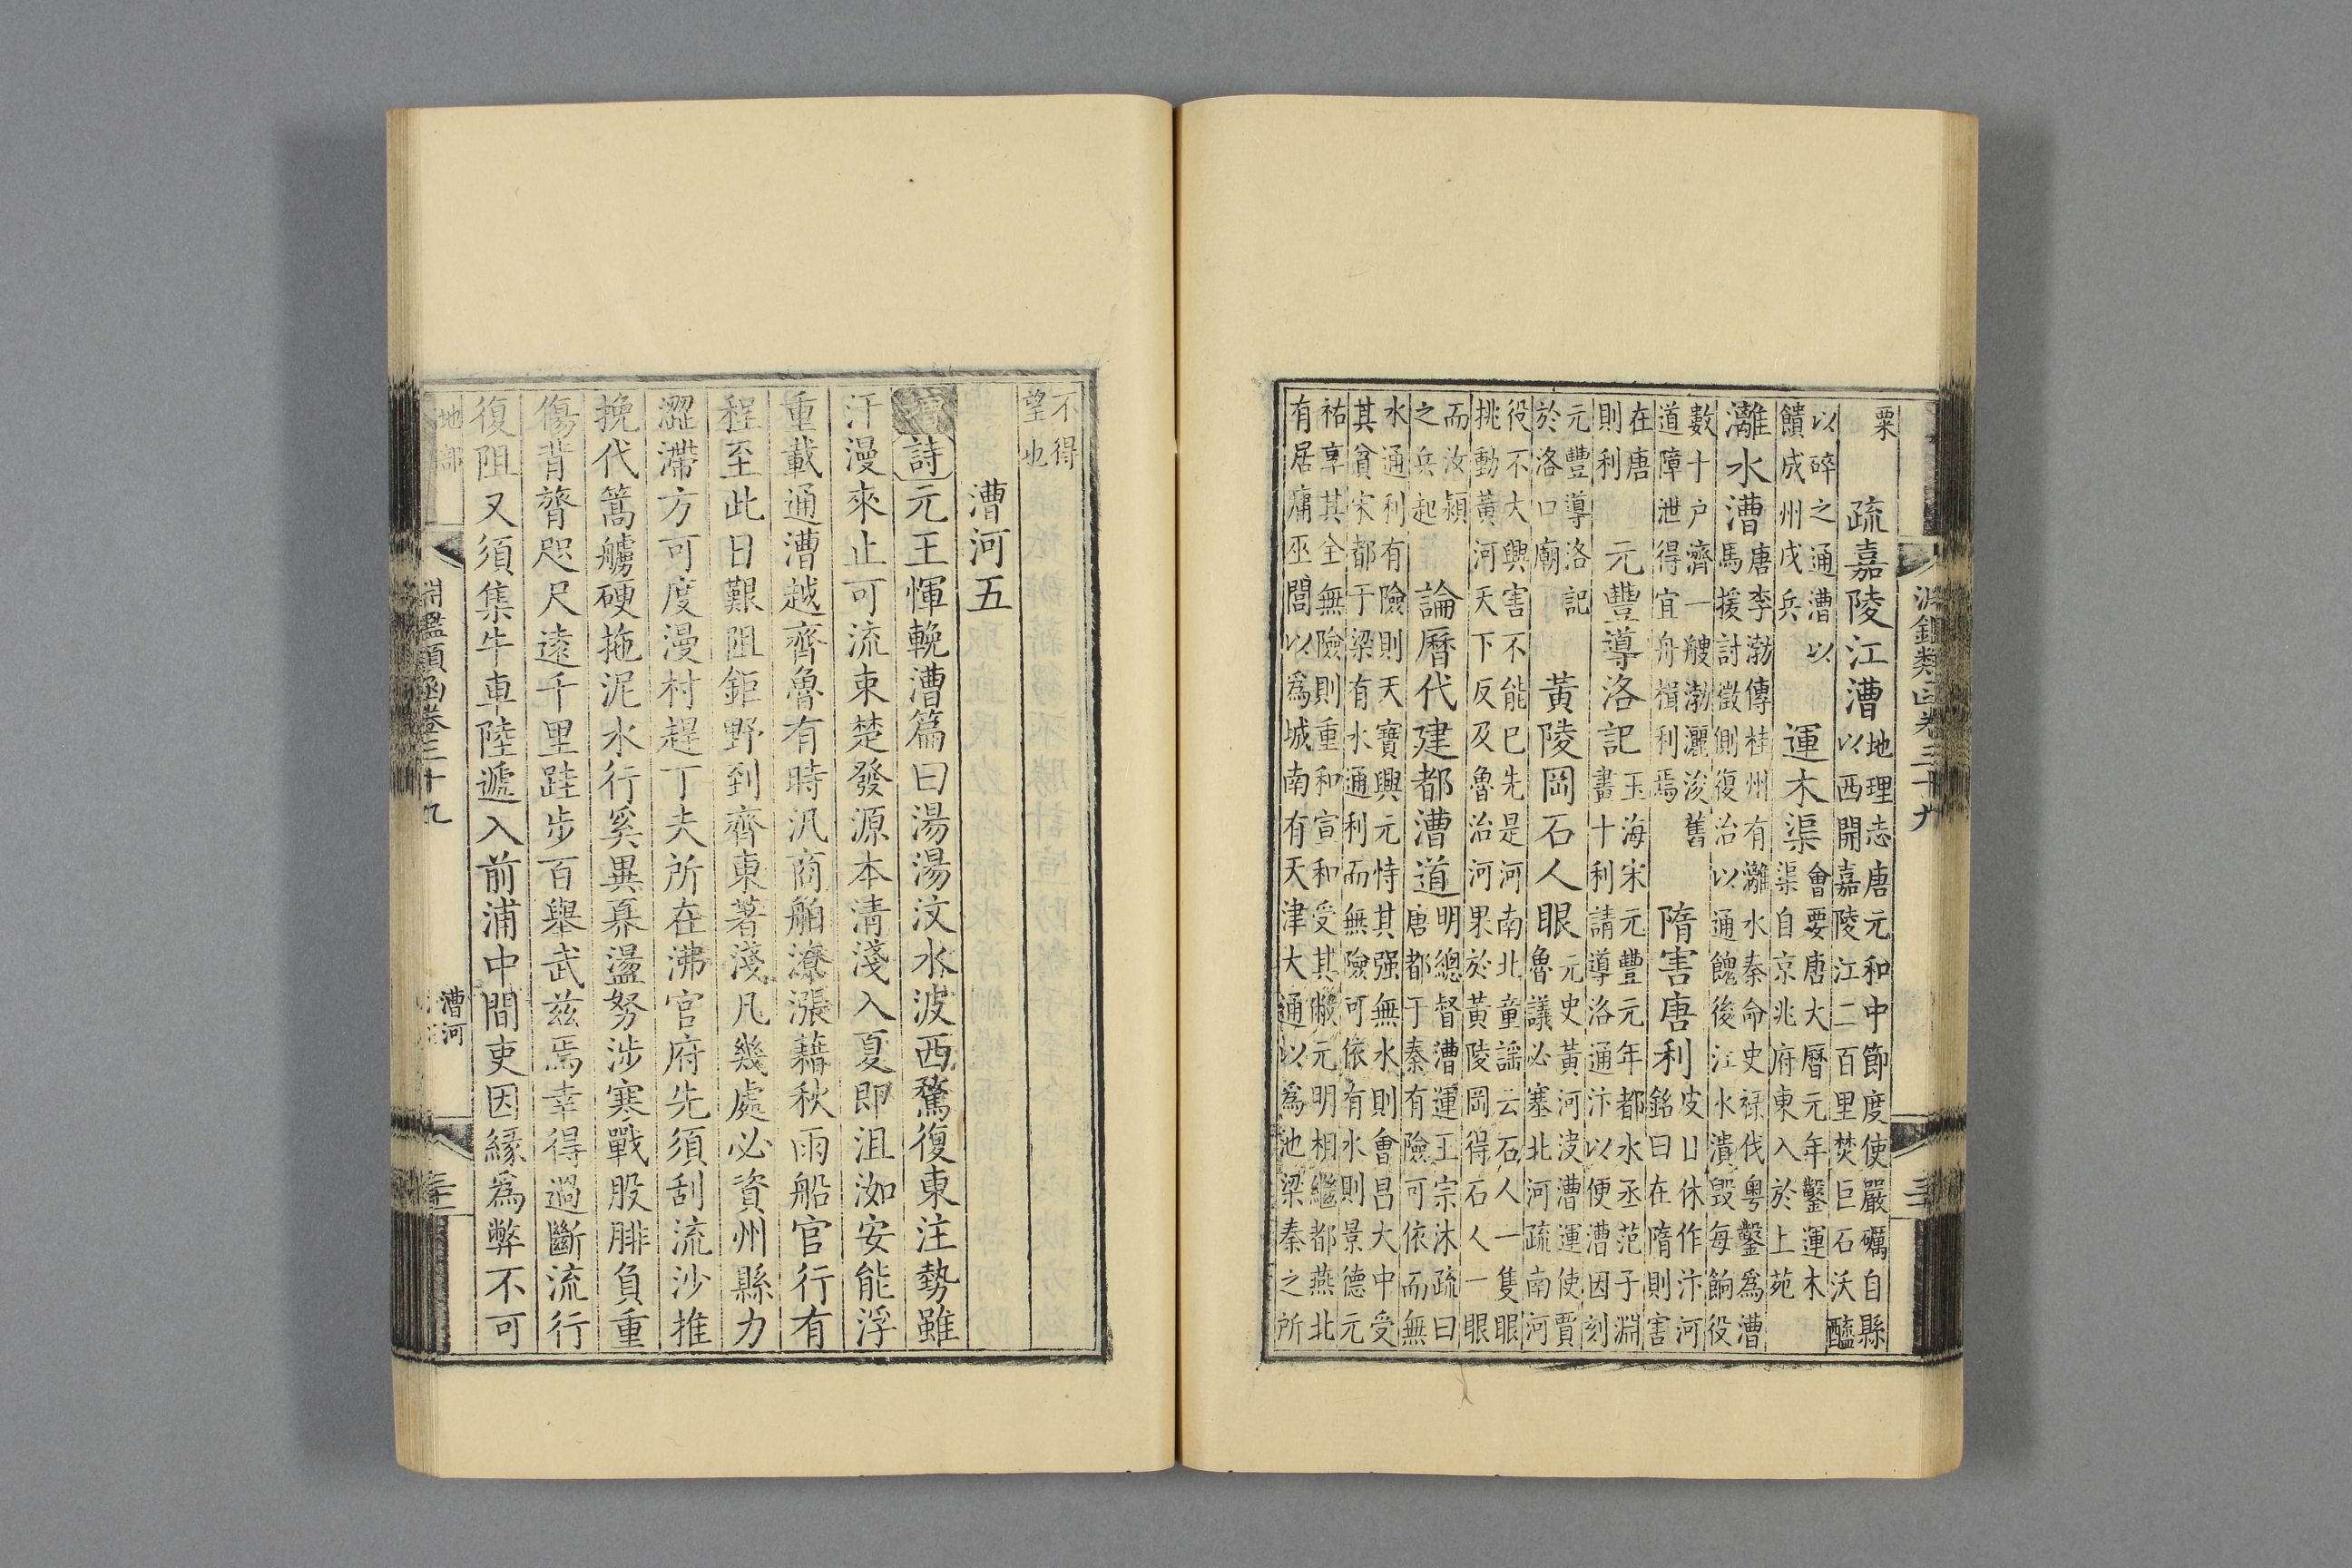 淵鑑類函卷三十九
粟
疏嘉陵江漕
地理志唐元和中節度使嚴礪自縣
以西開嘉陵江二百里焚巨石沃醯
以碎之通漕以
饋成州戍兵
運木渠
會要唐大曆元年鑿運木
渠自京兆府東入於上苑
灕水漕
唐李渤傳桂州有灕水秦命史祿伐粵鑿爲漕
馬援討徵側復治以通餽後江水潰毁每餉役
數十户濟一艘渤灑浚舊
道障泄得宜舟楫利焉
隋害唐利
皮日休作汴河
銘曰在隋則害
在唐
則利
元豐導洛記
玉海宋元豐元年都水丞范子淵
畫十利請導洛通汴以便漕因刻
元豐導洛記
於洛口廟
黃陵岡石人眼
元史黃河決漕運使賈
魯議必塞北河疏南河
役不大興害不能已先是河南北童謡云石人一隻眼
挑動黃河天下反及魯治河果於黃陵岡得石人一眼
而汝潁
之兵起
論曆代建都漕道
明總督漕運王宗沐疏曰
唐都于秦有險可依而無
水通利有險則天寶興元恃其强無水則會昌大中受
其貧宋都于梁有水通利而無險可依有水則景德元
祐享其全無險則重和宣和受其敝元明相繼都燕北
有居庸巫閭以爲城南有天津大通以爲池梁秦之所
不得
望也
漕河五
詩元王惲輓漕篇曰湯湯汶水波西騖復東注勢雖
汗漫來止可流束楚發源本清淺入夏即沮洳安能浮
重載通漕越齊魯有時汎商舶潦漲藉秋雨船官行有
程至此日艱阻鉅野到齊東著淺凡幾處必資州縣力
澀滯方可度漫村趕丁夫所在沸官府先須刮流沙推
挽代篙艣硬拖泥水行奚異奡盪努涉寒戰股腓負重
傷背膂咫尺遠千里跬步百舉武兹焉幸得過斷流行
復阻又須集牛車陸遞入前浦中間吏因緣爲弊不可
地部
淵鑑類函卷三十九
漕河